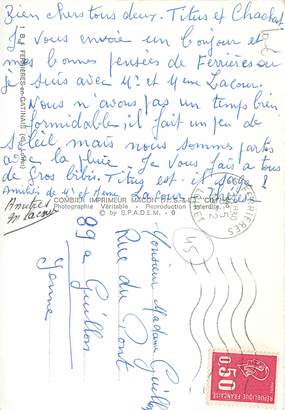 Bien chers tous deux. Titus et Chachat
Je vous envoie un bonjour et
mes bonnes pensées de Ferrières où
je suis avec Mr et Mme Lacour.
Nous n'avons pas un temps bien
formidable, il fait un peu de
soleil mais nous sommes partis
avec la pluie. Je vous fais à tous
de gros bibis. Titus est-il sage?
Amitiés de Mr et Mme Lacour
Amitiés
M Lacour
FERRIÈRES-en-GATINAIS (45 Loiret)
COMBIER IMPRIMEUR MACON
Photographie Véritable - Reproduction Interdite
© by S.P.A.D.E.M.
45
FERRIERES
LOIRET
Monsieur Madame Guillon
Rue du Pont
89 a Guillon
Yonne
0,50
REPUBLIQUE FRANÇAISE